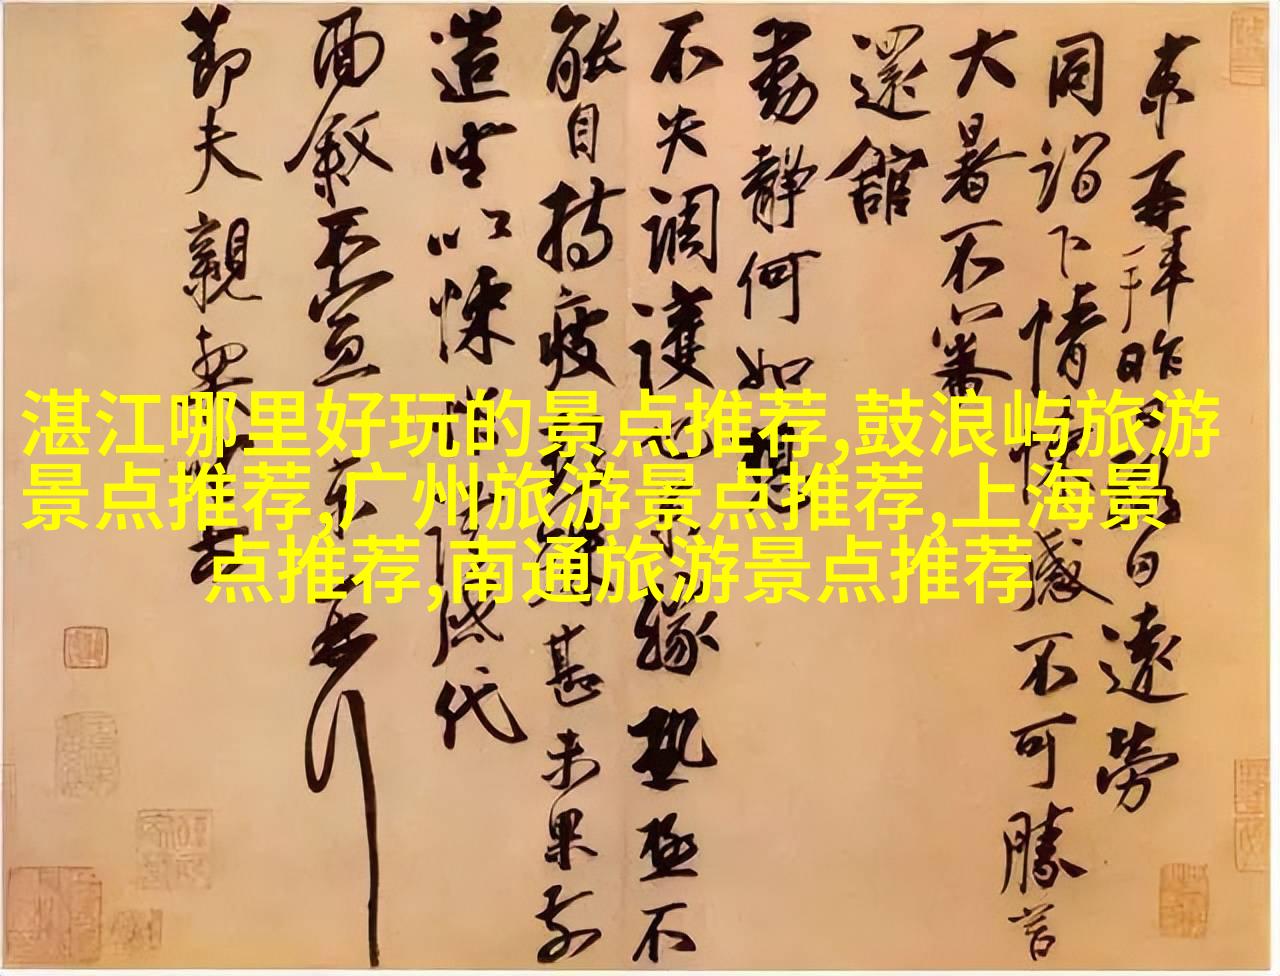 京再拜昨日遠勞
同詣下情感不可勝言
大暑不審
還舘
動靜何如想
不失調護也緣熱極不
能自持疲甚未果前
造坐以悚代
面叙不宣 京
節夫親契
湛江哪里好玩的景点推荐,鼓浪屿旅游
景点推荐,广州旅游景点推荐,上海景
点推荐,南通旅游景点推荐